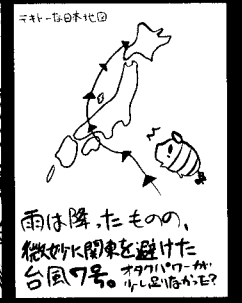 テキトーな日本地図
雨は降ったものの、
微妙に関東を避けた
台風7号。オタクパワーが
少し足りなかった?